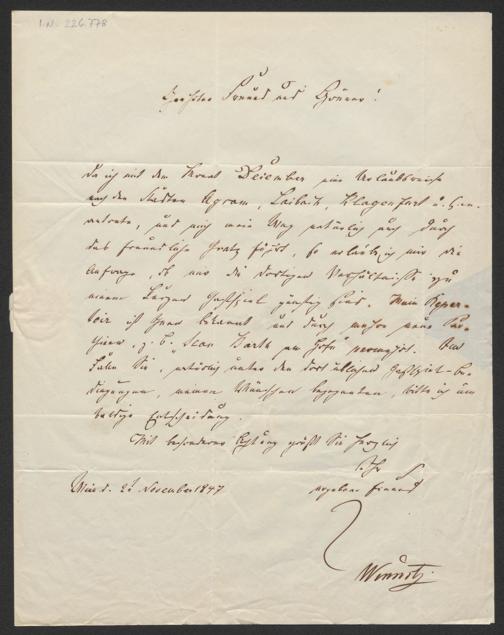 I.N. 226.778
Freund und Gönner!
Da ich mit dem Monat Dezember eine Urlaubsreise
nach den Städten Agram, Laibach, Klagenfurt
antrete, und mich mein Weg natürlich auch durch
das freundliche Gratz führt, so erlaube ich mir die
Anfrage, ob nur die dortigen Verhältnisse zu
einem kurzen Gastspiel günstig sind. Mein Reper-
toir ist Ihnen bekannt und durch mehre neue
z. B. "Jean Barth am Hofe" vermehrt.
Sie, natürlich unter den dort üblichen Gastspiel-Be-
dingungen, meinen Wünschen begegneten, bitte ich um
baldige Entscheidung.
Mit besonderer Achtung grüßt Sie herzlich
Ihr
ergebener Freund
Wien d. 21 November 1847